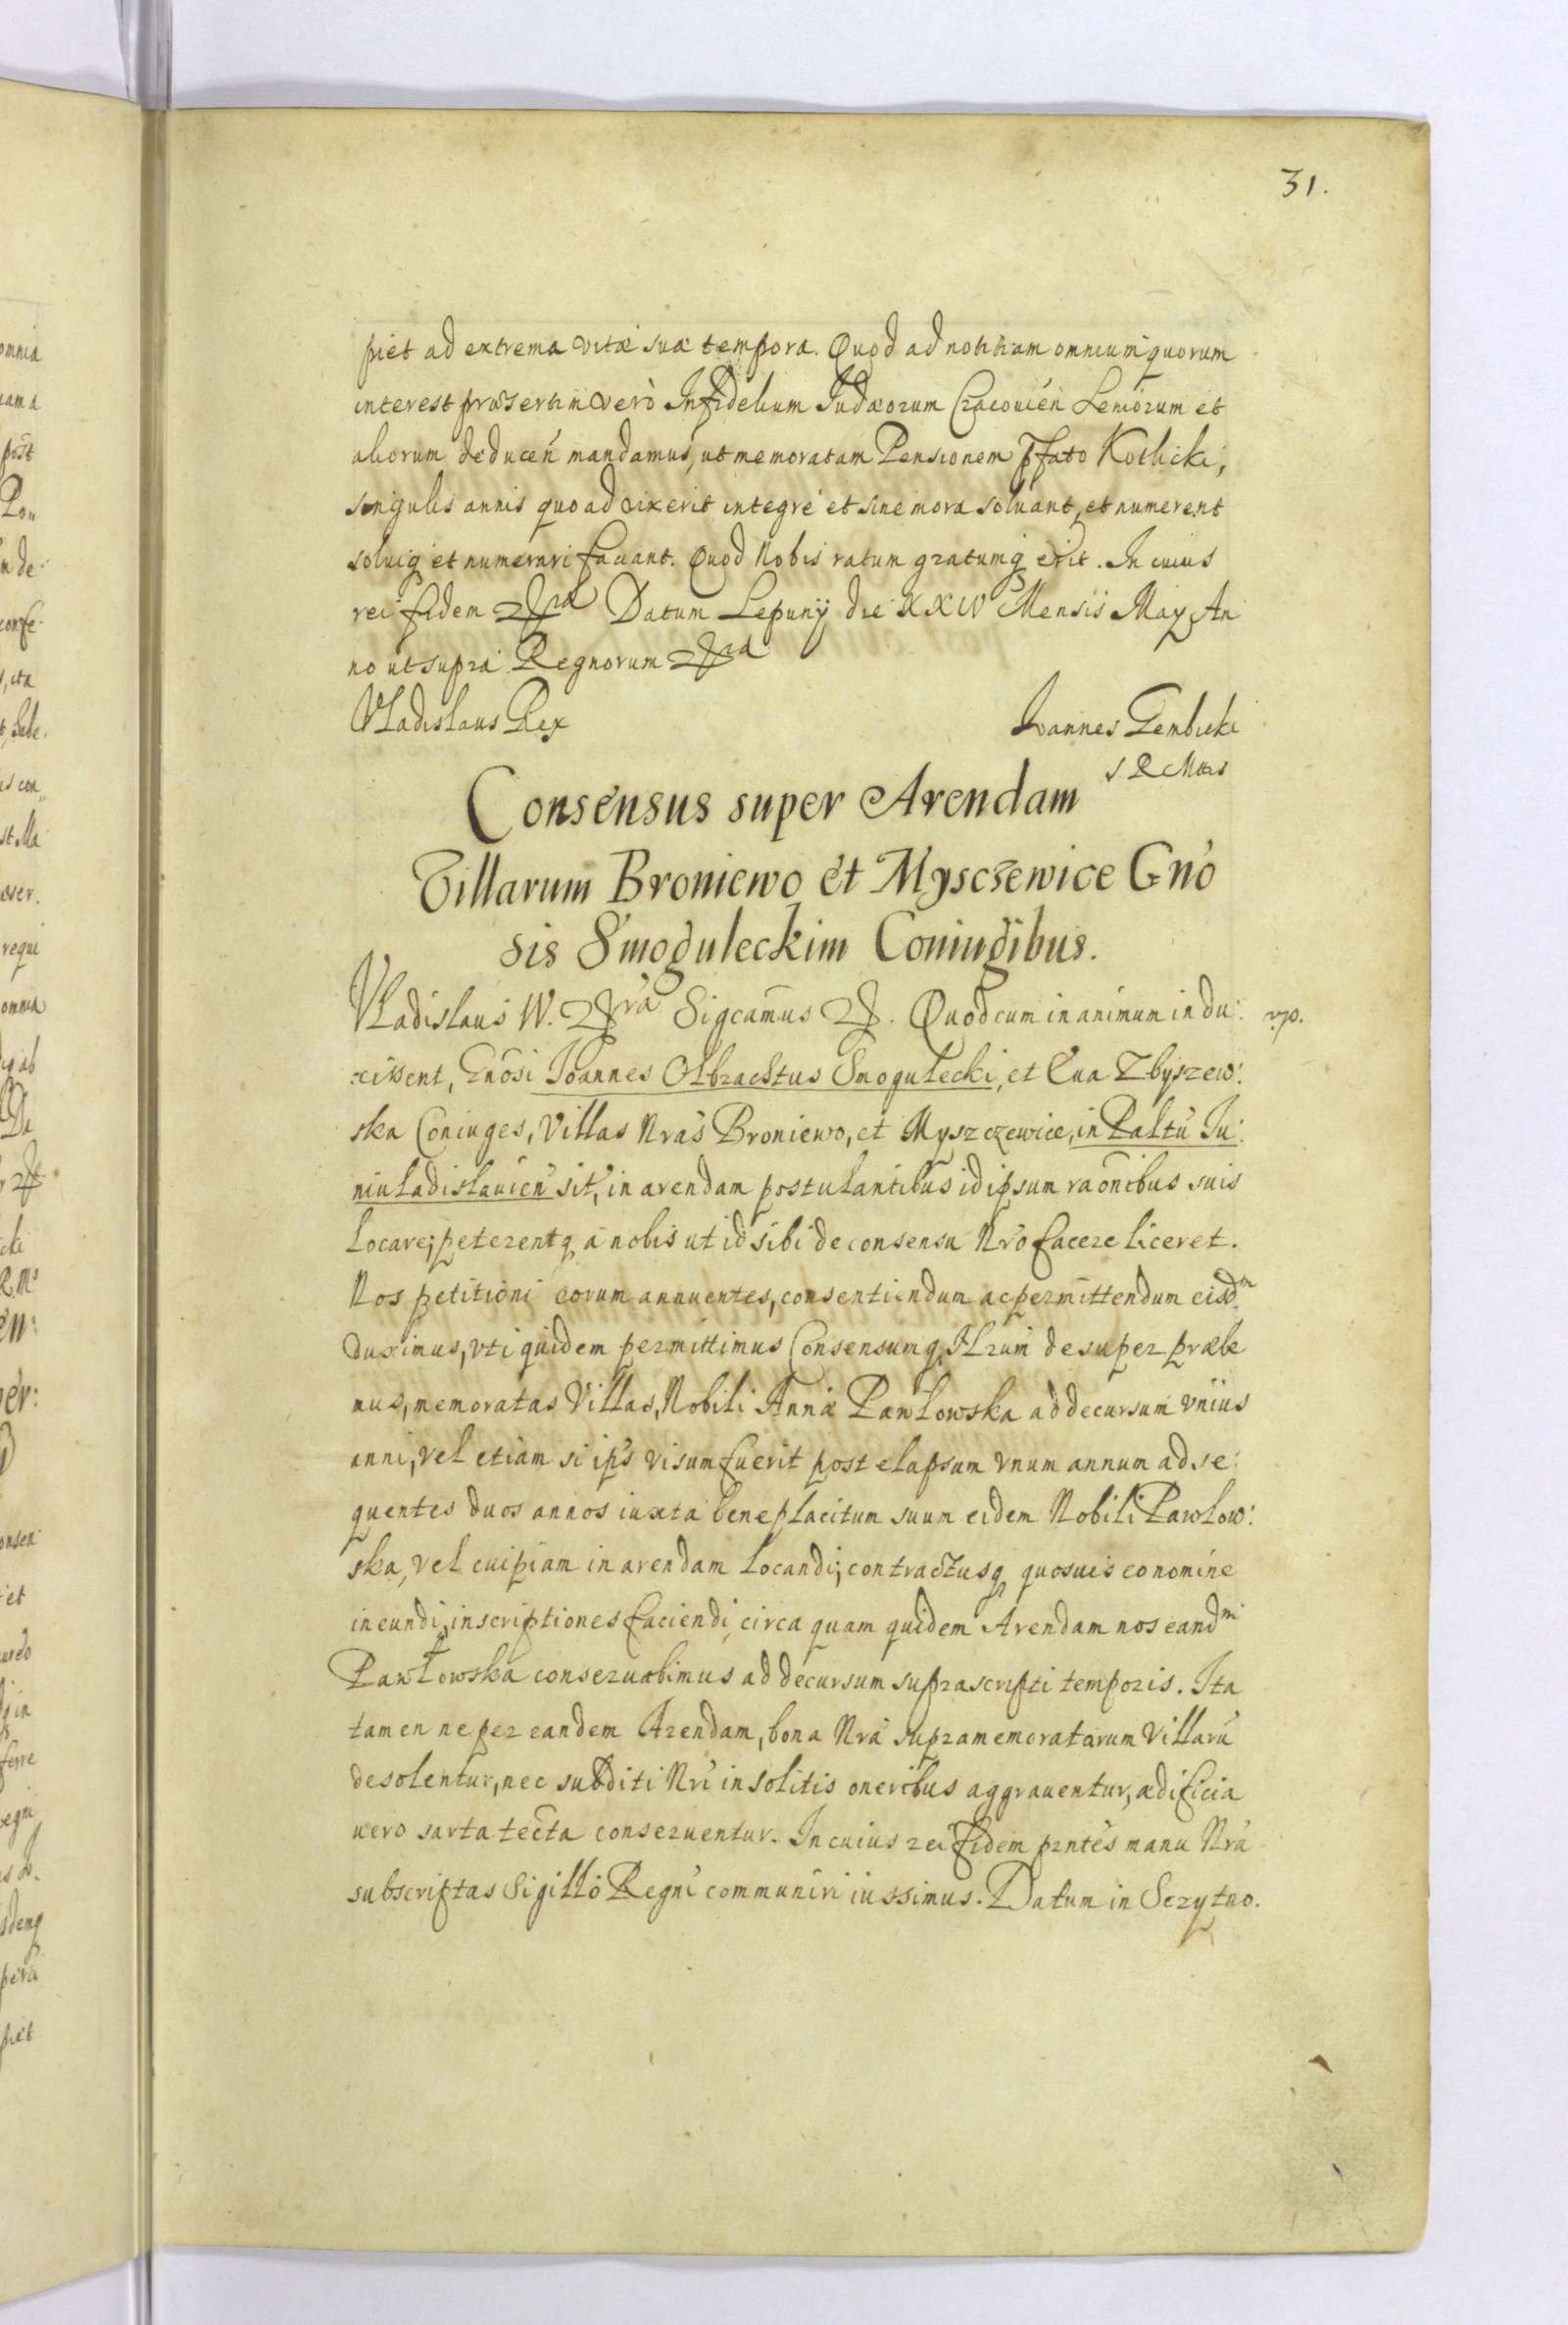 31.
piet ad extrema vitæ suæ tempora. Quod ad notitiam omnium quorum
interest præsertim verò Infidelium Judæorum Cracouień Senioŕum et
aliorum deduceń mandamus, ut memoratam Pensionem pfato Kotlicki,
singulis annis quoad vixerit integrè et sine mora soluant, et numerent
soluiq et numerari faciant. Quod Nobis ratum gratumq erit. In cuius
rei fidem Datum Lepuny die XXIV Mensis May An
no ut supra Regnorum
Vladislaus Rex
Joannes Gembicki
S R Mttis
Consensus super Arendam
Villarum Broniewo et Mysczewice Gno
sis Smoguleckim Coniugibus.
Vladislaus IV. Sigcamus Quod cum in animum indu:
xissent, Gnosi Joannes Olbrachtus Smogulecki, et Eua Zbyszew:
ska Coniuges, Villas Nras Broniewo, et Myszczewice, in Paltu Ju:
niuladislauień sit, in arendam postulantibus idipsum raonibus suis
locare; peterentq a nobis ut id sibi de consensu Nro facere liceret.
Nos petitioni eorum annuentes, consentiendum ac permittendum eisdm
duximus, vti quidem permittimus Consensumq Nrum desuper præbe
mus, memoratas Villas, Nobili Annæ Pawłowska ad decursum vnius
anni, vel etiam si ipis visum fuerit post elapsum vnum annum ad se:
quentes duos annos iuxta beneplacitum suum eidem Nobili Pawlow:
ska, vel cuipiam in arendam locandi; contractusq quosuis eo nomine
ineundi, inscriptiones faciendi, circa quam quidem Arendam nos eandm
Pawłowska conseruabimus ad decursum suprascripti temporis. Ita
tamen ne per eandem Arendam, bona Nra supramemoratarum Villarū
desolentur, nec subditi Nri insolitis oneribus aggrauentur, ædificia
uero sarta tecta conseruentur. In cuius rei fidem pntes manu Nra
subscriptas Sigillo Regni communiri iussimus. Datum in Sczytno.